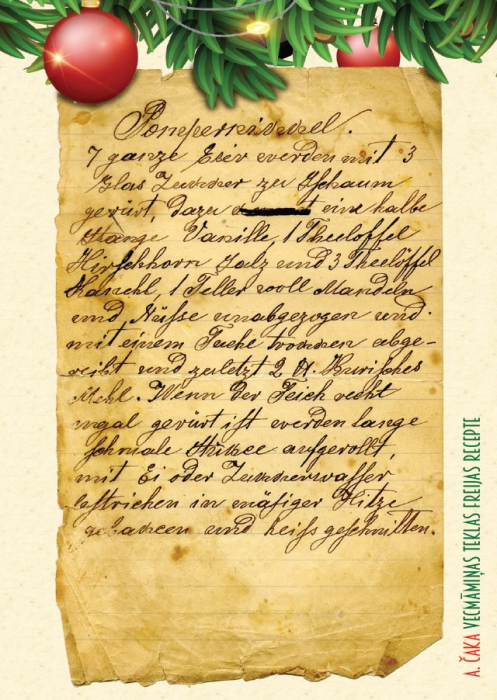 Pompernikkel.
7 ganze Eier werden mit 3
Glas Zukker zu Schaum
gerürt, dazu eine halbe
Stange Vanille, 1 Theeloffel
Hirschhorn Salz und 3 Theelöffel
Kanehl, 1 Teller voll Mandeln
und Nüsse unabgezogen und
mit einem Tuche trokken abge-
reibt und zuletzt 2 tt. Kurisches
Mehl. Wenn der Teich recht
egal gerürt ist werden lange
schmale Stükke aufgerollt,
mit Ei oder Zukkerwasser
bestrichen in mäsiger Hitze
gebakken und heiss geschnitten.
A. ČAKA VECMĀMIŅAS TEKLAS FREIJAS RECEPTE